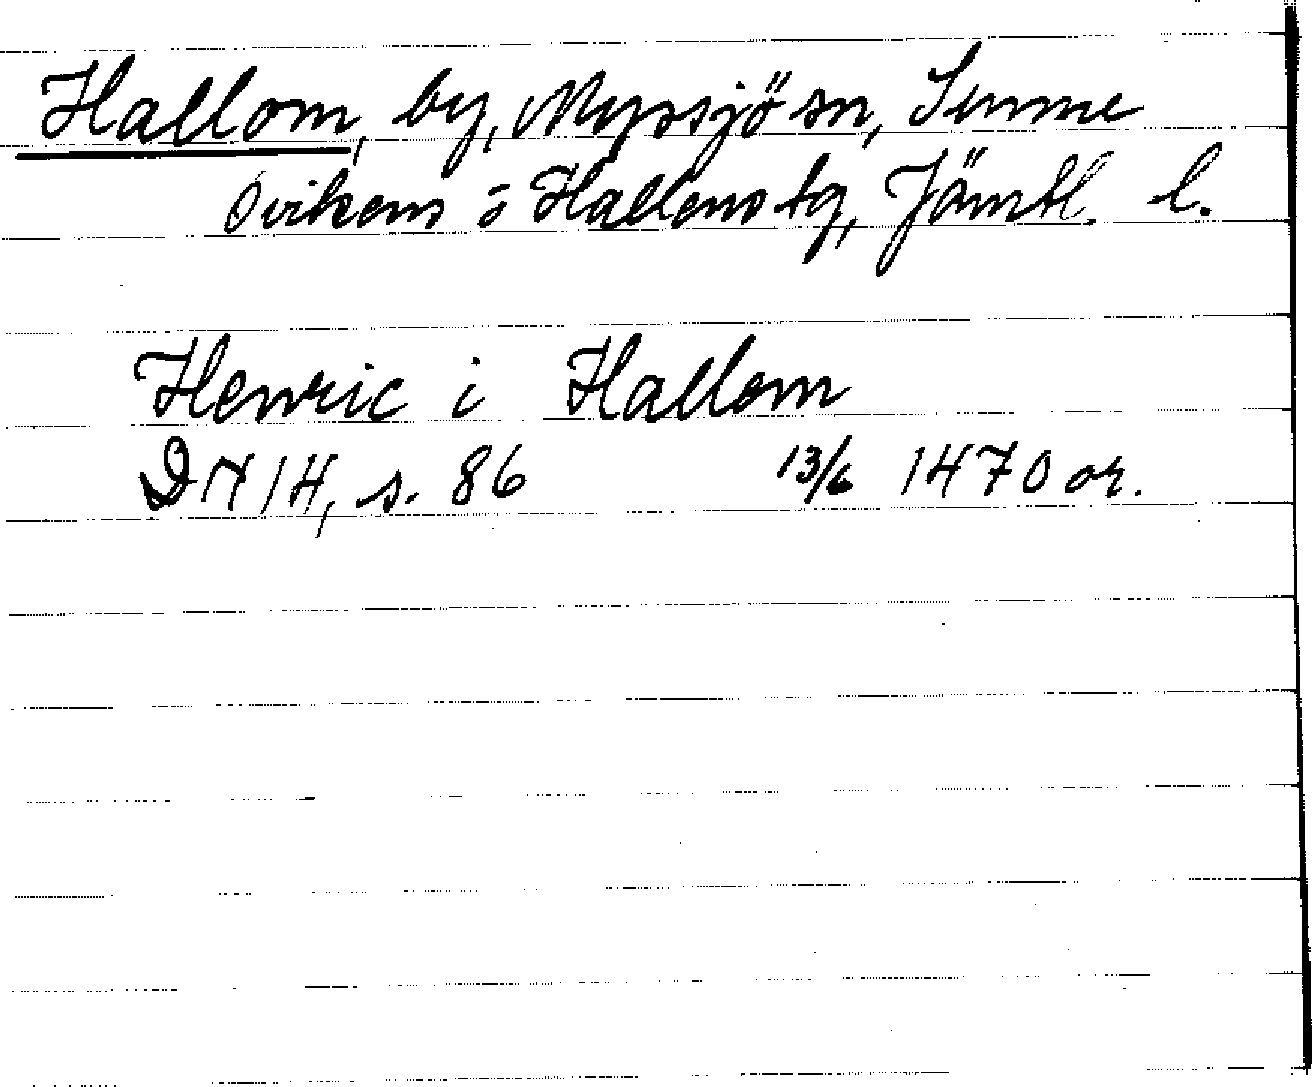 Hallom, by, Myssjö sn, Sunne
Ovikens o Hallens tg, Jämtl. l.
Henric i Hallom
DN 14, s. 86 13/6 1470 or.